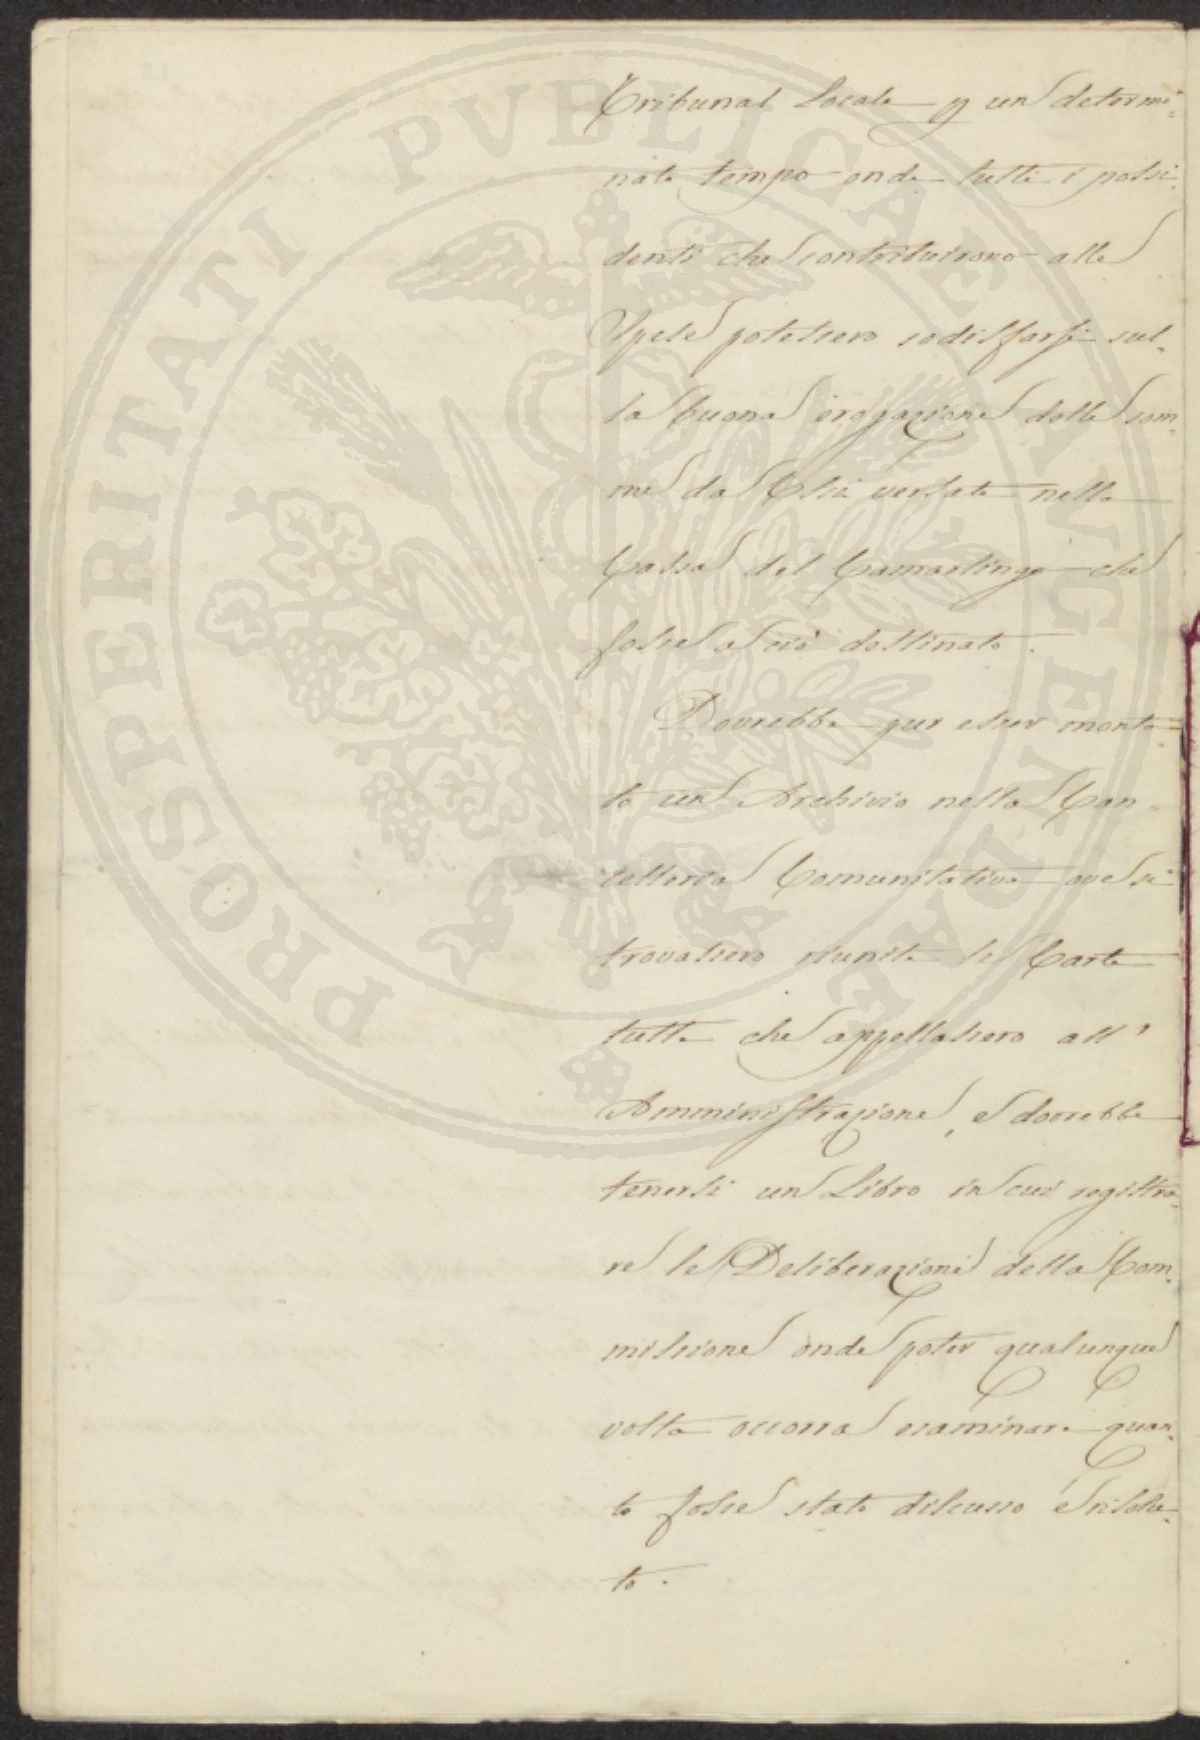 Tribunal Locale p un determi=
nato tempo onde tutti i possi=
denti che contribuirono alle
Spese potessero sodisfarsi sul=
la buona erogazione delle som=
me da Essi versate nella
Cassa del Camarlingo che
fosse a ciò destinato.
Dovrebbe pur esser monta=
to un Archivio nella Can=
celleria Comunitativa ove si
trovassero riunite le Carte
tutte che appellassero all'
Amministrazione, e dovrebbe
tenersi un Libro in cui registra=
re le Deliberazioni della Com=
missione onde poter qualunque
volta occorra esaminare quan=
to fosse stato discusso e risolu=
to.
PROSPERITATI PVBLICAE AVGENDAE